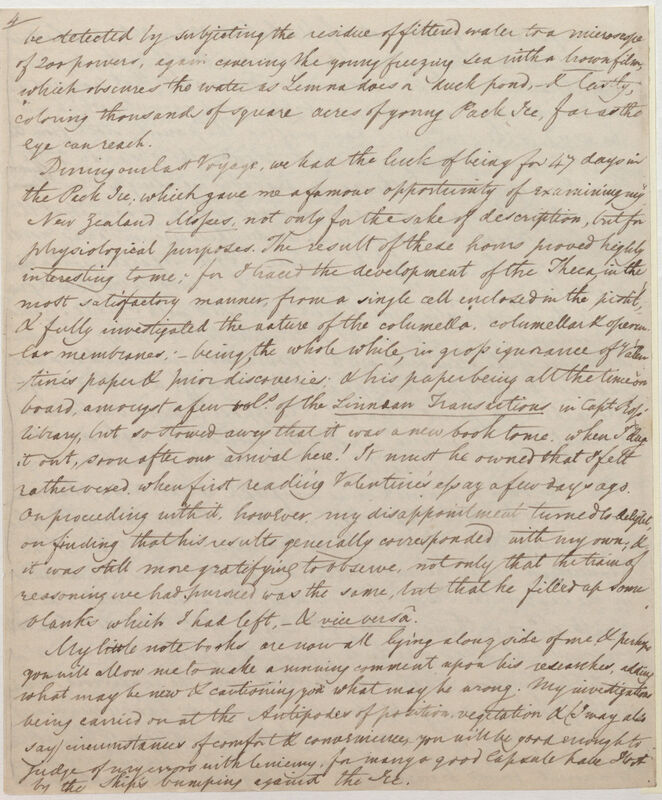 4
be detected by subjecting the residue of filtered water to a microscope
of 200 powers, again covering the young freezing sea with a brown film,
which obscures the water as Lemna does a duck pond, - & lastly,
coloring thousands of square acres of young Pack Ice, far as the
eye can reach.
During our last Voyage, we had the luck of being for 47 days in
the Pack Ice, which gave me a famous opportunity of examining my
New Zealand Mosses, not only for the sake of description, but for
physiological purposes. The result of these hours proved highly
interesting to me; for I traced the development of the Theca, in the
most satisfactory manner, from a single cell enclosed in the pistil,
& fully investigated the nature of the columella, columellar & opercu-
lar membranes; - being, the whole while, in gross ignorance of Valen-
tine's paper & prior discoveries; & his paper being all the time on
board, amongst a few vols. of the Linnæan Transactions in Capt. Ross'
library, but so stowed away that it was a new book to me, when I dug
it out, soon after our arrival here! It must be owned that I felt
rather vexed, when first reading Valentine's essay a few days ago.
On proceeding with it, however, my disappointment turned to delight,
on finding that his results generally corresponded with my own; &
it was still more gratifying to observe, not only that the train of
reasoning we had pursued was the same, but that he filled up some
blanks which I had left, - & vice versâ.
My little note books are now all lying along side of me & perhaps
you will allow me to make a running comment upon his researches, adding
what may be new & cautioning you what may be wrong. My investigations
being carried on at the Antipodes of position, vegetation & (I may also
say) circumstances of comfort & convenience, you will be good enough to
judge of my errors with leniency, for many a good Capsule have I lost
by the Ship's bumping against the Ice.